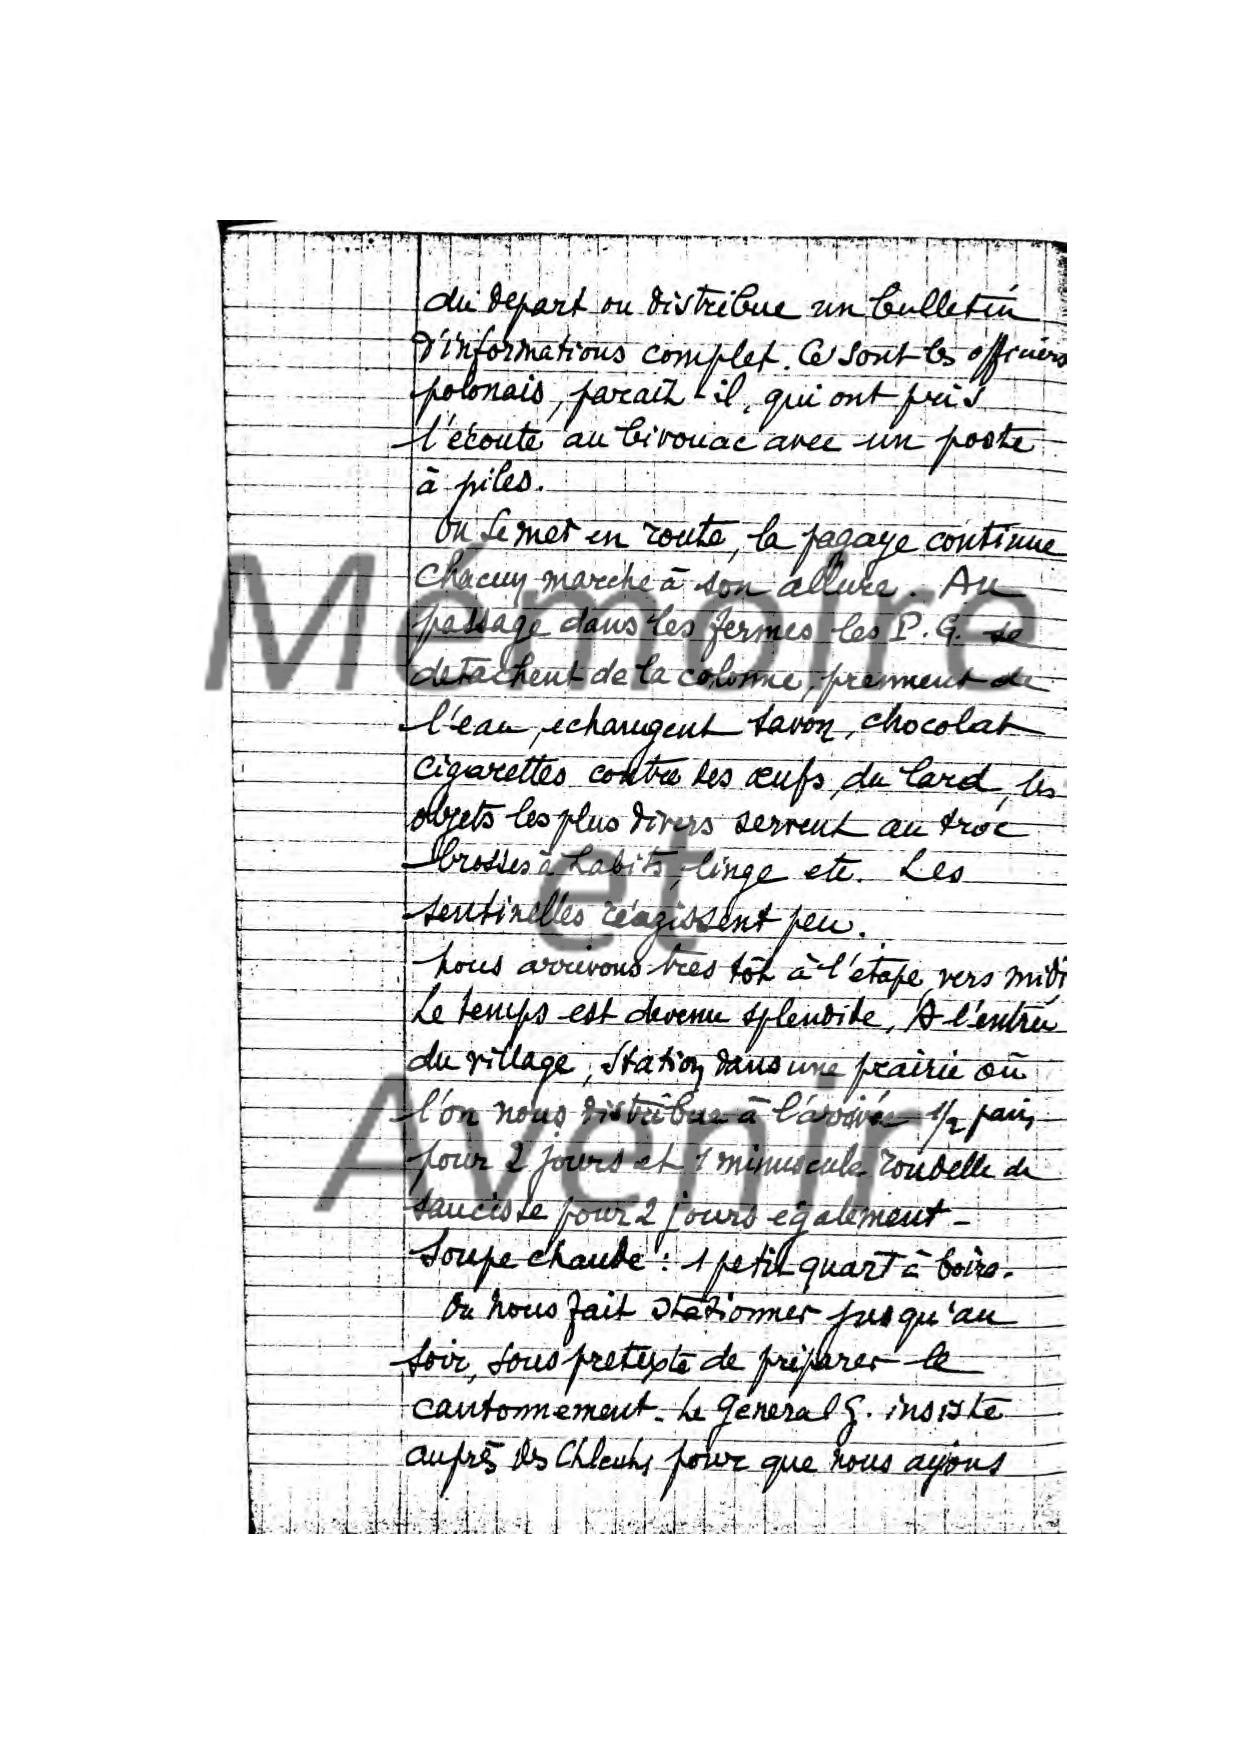 du départ on distribue un bulletin
d'informations complet. Ce sont les officiers
polonais, paraît-il, qui ont pris
l'écoute au bivouac avec un poste
à piles.
On se met en route, la pagaye continue
Chacun marche à son allure. Au
passage dans les fermes les P.G. se
detachent de la colonne, prennent de
l'eau, echangent savon, chocolat
cigarettes contre des œufs, du lard, les
objets les plus divers servent au troc
brosses à habits, linge etc. Les
sentinelles réagissent peu.
Nous arrivons très tôt à l'étape, vers midi
Le temps est devenu splendide, A l'entrée
du village, station dans une prairie où
l'on nous distribue à l'arrivée 1/2 pain
pour 2 jours et 1 minuscule rondelle de
saucisse pour 2 jours également -
Soupe chaude : 1 petit quart à boire.
On nous fait stationner jusqu'au
soir, sous pretexte de préparer le
cantonnement. Le Général G. insiste
auprès des Chleuhs pour que nous ayions
Mémoire
et
Avenir